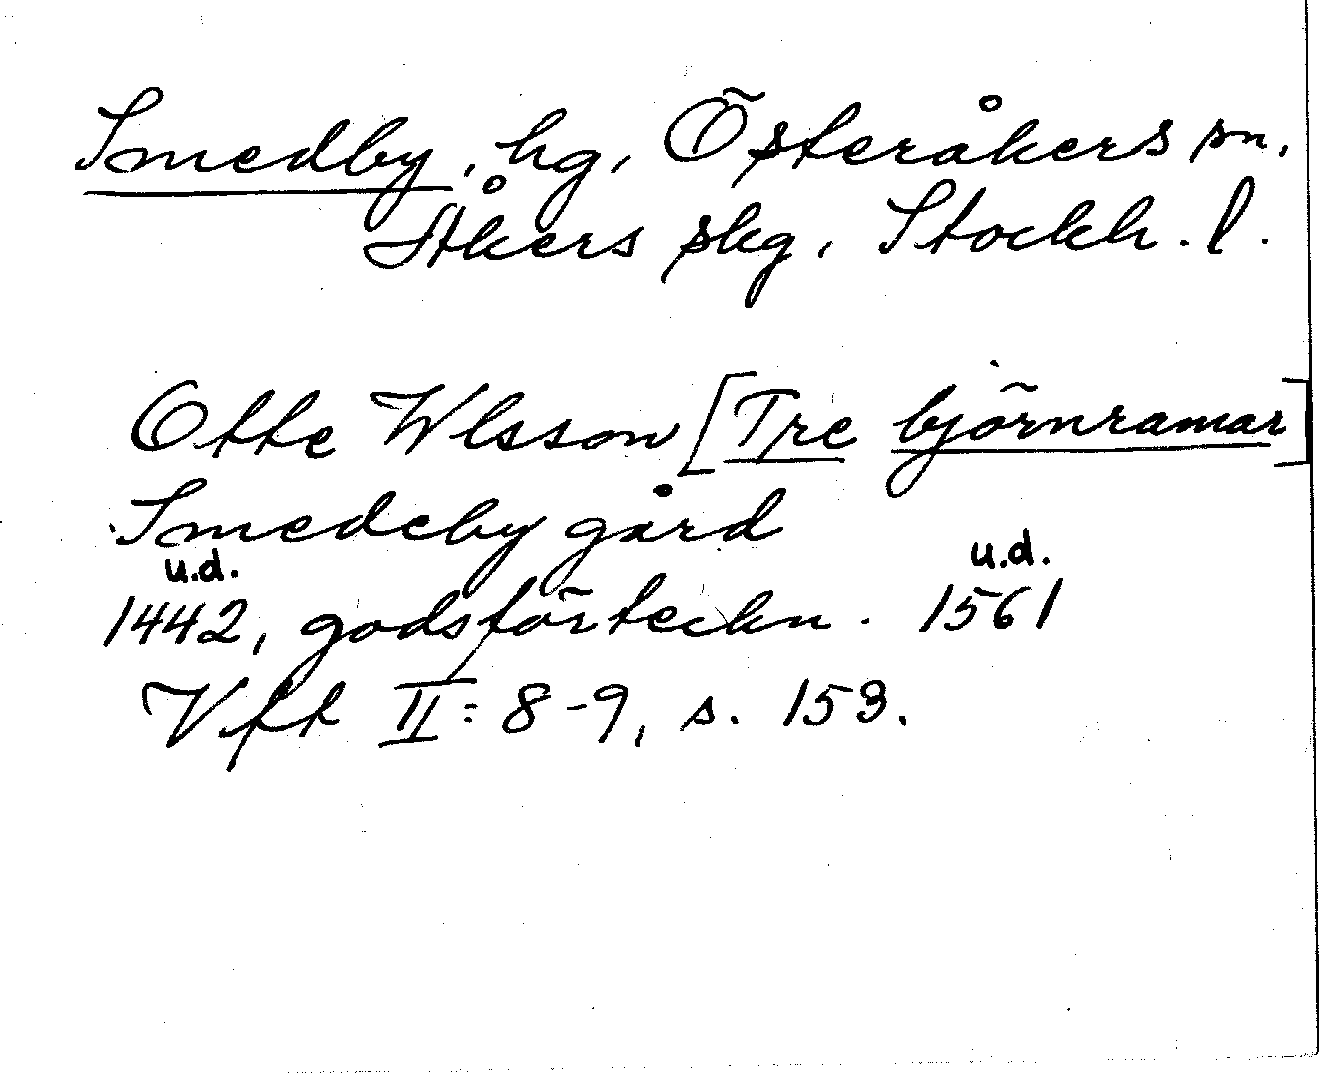 Smedby, hg, Österåkers sn,
Åkers skg, Stockh. l.
Otte Wlsson [Tre björnramar]
Smedeby gård
u.d. u.d.
1442, godsförteckn. 1561
Vff II: 8-9, s. 153.